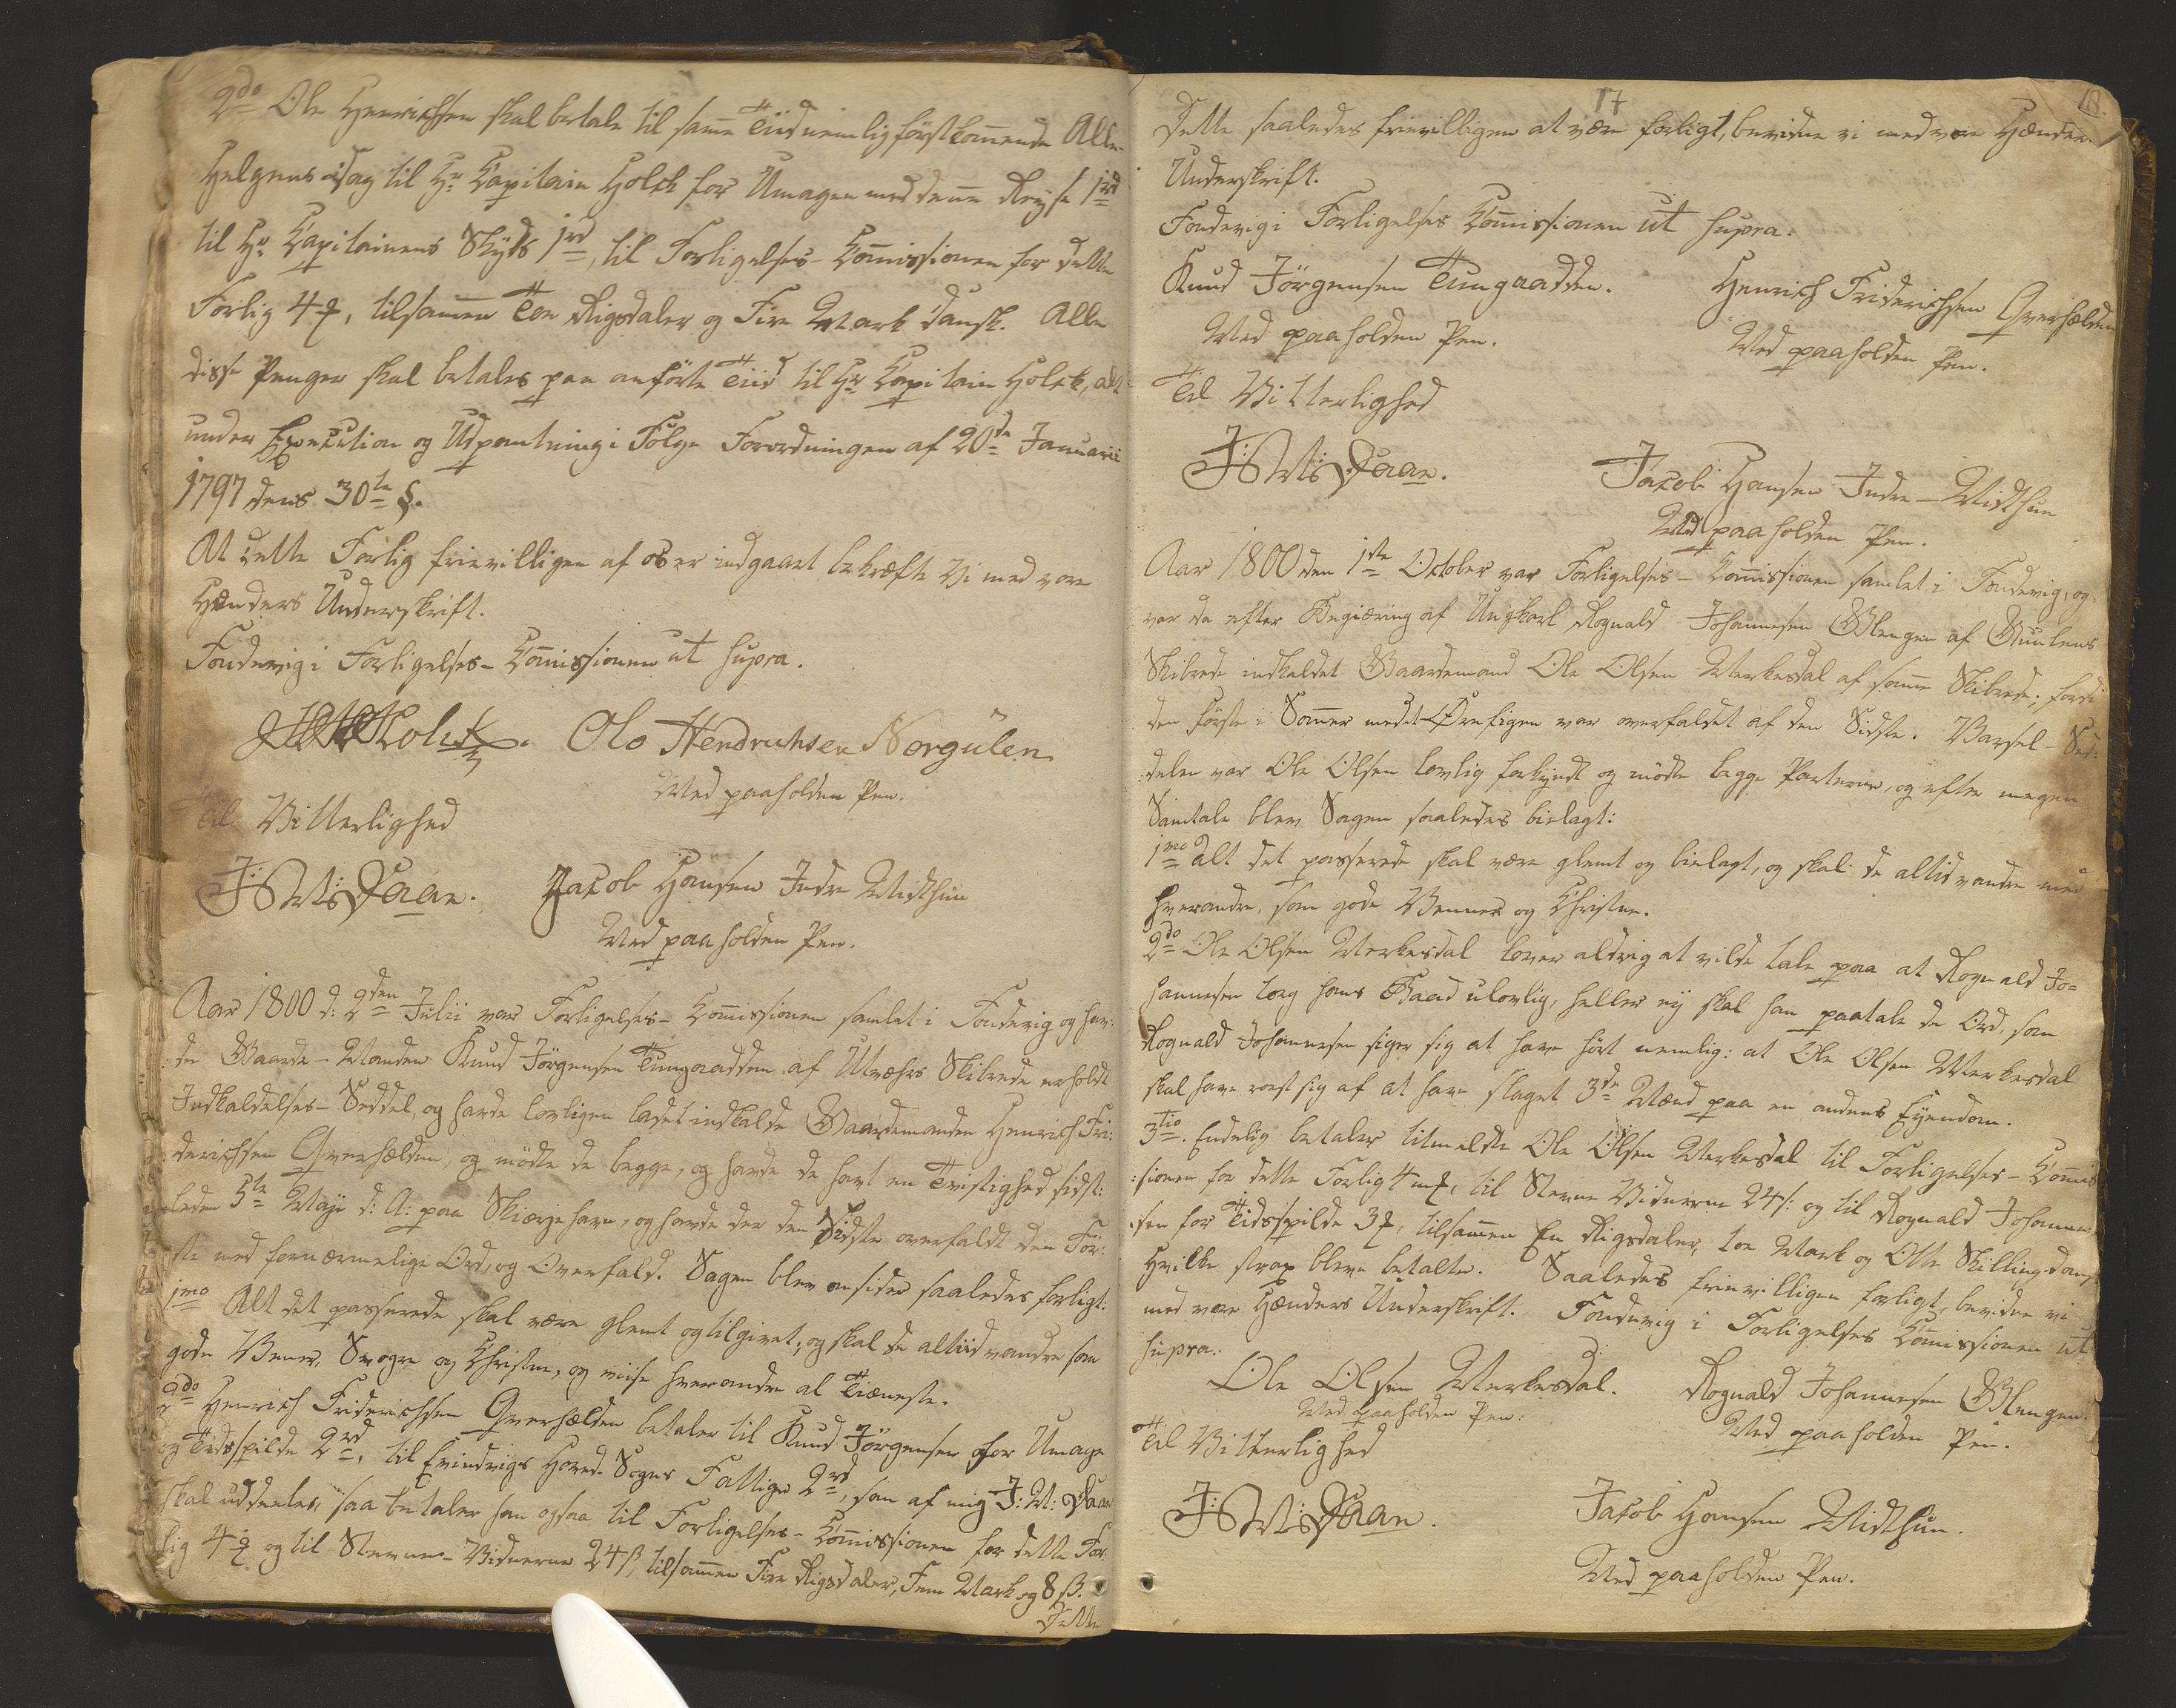 2do Ole Henrichsen skal betale til samme Tiid nemlig förstkommende Alle-
Helgens Dag til Hr Capitain Holck for Umagen med denne Reyse 1rd
til Hr Capitainens Skyds 1rd, til Forligelses-Commissionen for dette
Forlig 4 mk, tilsammen Toe Rigsdaler og Fire Mark dansk. Alle
disse Penger skal betales paa anförte Tiid til Hr Capitain Holck, alt
under Execution og Udpantning i Fölge Forordningen af 20de Januarii
1797 dens 30te §.
At dette Forlig frievilligen af os er indgaaet bekræfte Vi med vore
Hænders Underskrift.
Fondevig i Forligelses-Commissionen ut supra.
Holck. Ole Hendrichsen Norgülen
Med paaholden Pen.
Til Vitterlighed
J: M: Daae. Jacob Hansen Indre Midthun
Med paaholden Pen.
Aar 1800 d: 2den Julii var Forligelses-Commissionen samlet i Fondevig og hav-
de Gaarde-Manden Knud Jörgensen Tungaadden af Utvæhrs Skibrede erholdt
Indkaldelses-Seddel, og havde lovligen ladet indkalde Gaardemanden Henrich Fri:
derichsen Qverhælden, og mödte de begge, og havde de havt en Tvistighed sidst:
leden 5te Maji d: A: paa Skiærjehavn, og havde der den Sidste overfaldt den För:
ste med fornærmelige Ord, og Overfald. Sagen blev omsider saaledes forligt:
1mo Alt det passerede skal være glemt og tilgivet, og skal de altiid vandre som
gode Venner, Svogre og Christne, og viise hverandre al Tieneste.
2do Henrich Friderichsen Qverhælden betaler til Knud Jörgensen for Umage
og Tidsspilde 2rd, til Evindvigs Hoved-Sogns Fattige 2rd, som af mig J: M: Daae
skal uddeeles, saa betaler han ogsaa til Forligelses-Commissionen for dette For:
lig 4 mk og til Stevne-Vidnerne 24 ß, tilsammen Fire Rigsdaler, Fem Mark og 8 ß.
Dette
17
18.
Dette saaledes frievilligen at være forligt, bevidne vi med vore Hænders
Underskrift.
Fondevig i Forligelses Commissionen ut supra.
Knud Jörgensen Tungaadden. Henrich Friderichsen Qverhælden
Med paaholden Pen. Med paaholden Pen.
Til Vitterlighed
J: M: Daae. Jacob Hansen Indre-Midthun
Med paaholden Pen.
Aar 1800 den 1ste October var Forligelses-Commissionen samlet i Fondevig, og
var da efter Begiæring af Ungkarl Rognald Johannesen Glengen af Gulens
Skibrede indkaldet Gaardemand Ole Olsen Merkesdal af samme Skibrede; fordi
den förste i Sommer med et Örefigen var overfaldet af den Sidste. Varsel-Sed:
delen var Ole Olsen lovlig forkyndt og mödte begge Parterne, og efter megen
Samtale blev Sagen saaledes bielagt:
1mo Alt det passerede skal være glemt og bielagt, og skal de altid vandre med
hverandre, som gode Venner og Christne.
2do Ole Olsen Merkesdal lover aldrig at vilde tale paa at Rognald Jo=
hannesen tog hans Baad ulovlig, heller ey skal han paatale de Ord, som
Rognald Johannesen siger sig at have hört nemlig: at Ole Olsen Merkesdal
skal have roest sig af at have slaget 3de Mænd paa en andens Eyendom.
3tio. Endelig betaler tilmeldte Ole Olsen Merkesdal til Forligelses-Commis
:sionen for dette Forlig 4 mk, til Stevne Vidnerne 24 ß: og til Rognald Johanne:
:sen for Tidsspilde 3 mk, tilsammen En Rigsdaler, toe Mark og Otte Skilling dansk,
hvilke strax bleve betalte. Saaledes frievilligen forligt, bevidne vi
med vore Hænders Underskrift. Fondevig i Forligelses Commissionen ut
supra:
Ole Olsen Merkesdal. Rognald Johannesen Glengen.
Med paaholden Pen: Med paaholden Pen.
Til Vitterlighed
J: M: Daae. Jacob Hansen Midthun.
Med paaholden Pen.